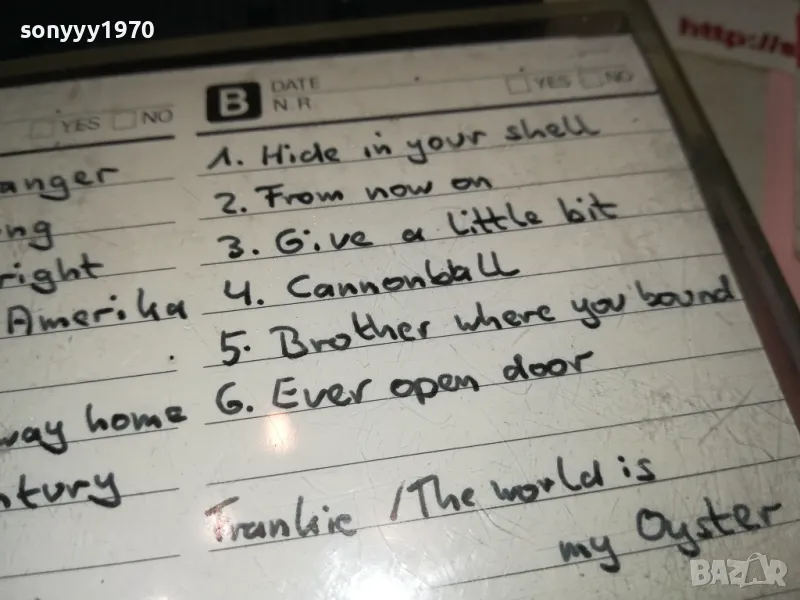 sonyyy1970
http://s
YES NO
anger
ng
right
Amerika
way home
ntury
B DATE YES NO
N.R.
1. Hide in your shell
2. From now on
3. Give a little bit
4. Cannonball
5. Brother where you bound
6. Ever open door
Frankie / The world is
my Oyster
BAZAR